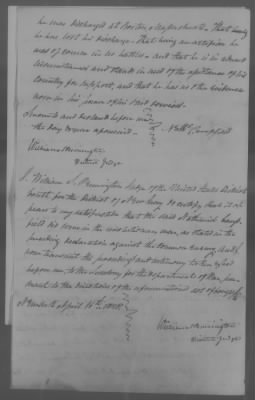 he was discharged at Boston Massachusetts. That having
he has lost his discharge. That being an artificer he
was of course in no battles. and that he is in reduced
circumstances and stands in need of the assistance of his
Country for support, and that he has no other evidence
now in his power of his said services.
Sworn and declared before me
the day & year aforesaid.
Nath. Campfield
William S Pennington
District Judge
I, William S. Pennington Judge of the United States District
Court, for the District of New Jersey do certify that it ap
pears to my satisfaction that the said Nathaniel Camp
field did serve in the revolutionary war, as stated in the
preceding declaration against the common enemy, And I
now transmit the proceedings and testimony taken & had
before me to the Secretary for the department of War, pur
suant to the directions of the aforementioned act of congress
Newark April 14th 1818
William S Pennington
District Judge